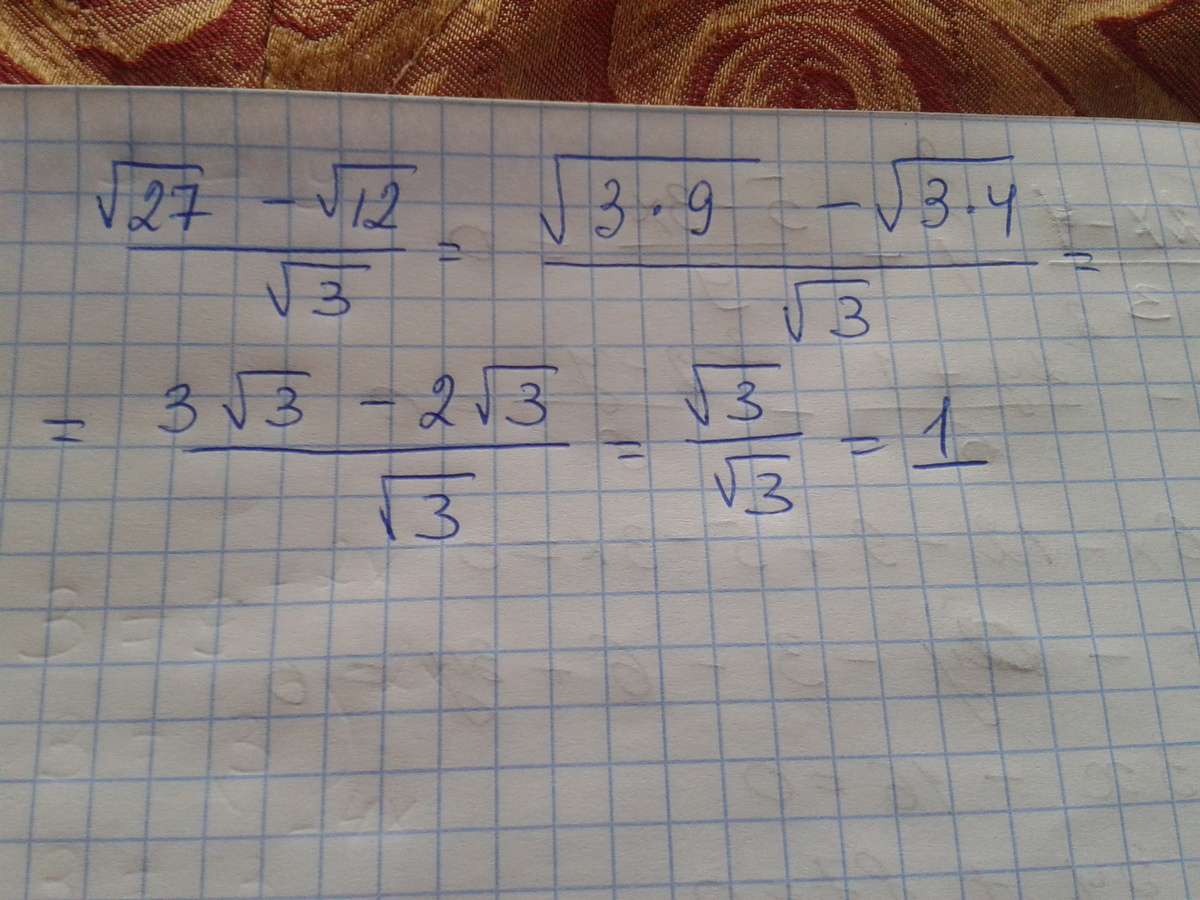 (√27 − √12)/√3 = (√(3·9) − √(3·4))/√3 =
= (3√3 − 2√3)/√3 = √3/√3 = 1